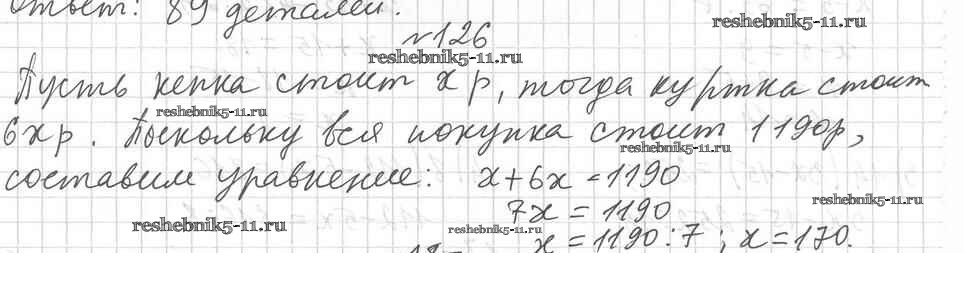 Ответ: 89 деталей.
reshebnik5-11.ru
№126
reshebnik5-11.ru
Пусть кепка стоит x р, тогда куртка стоит
reshebnik5-11.ru
6x р. Поскольку вся покупка стоит 1190р,
reshebnik5-11.ru
составим уравнение: x+6x=1190
reshebnik5-11.ru
7x = 1190
reshebnik5-11.ru
reshebnik5-11.ru
x=1190:7; x=170.